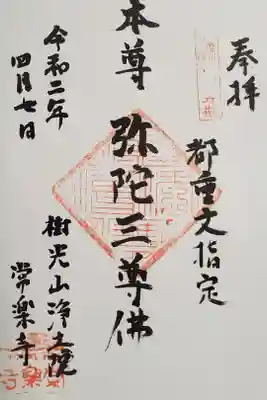 奉拝
都重文指定
本尊 弥陀三尊佛
樹光山浄土院
常楽寺
令和二年
四月七日